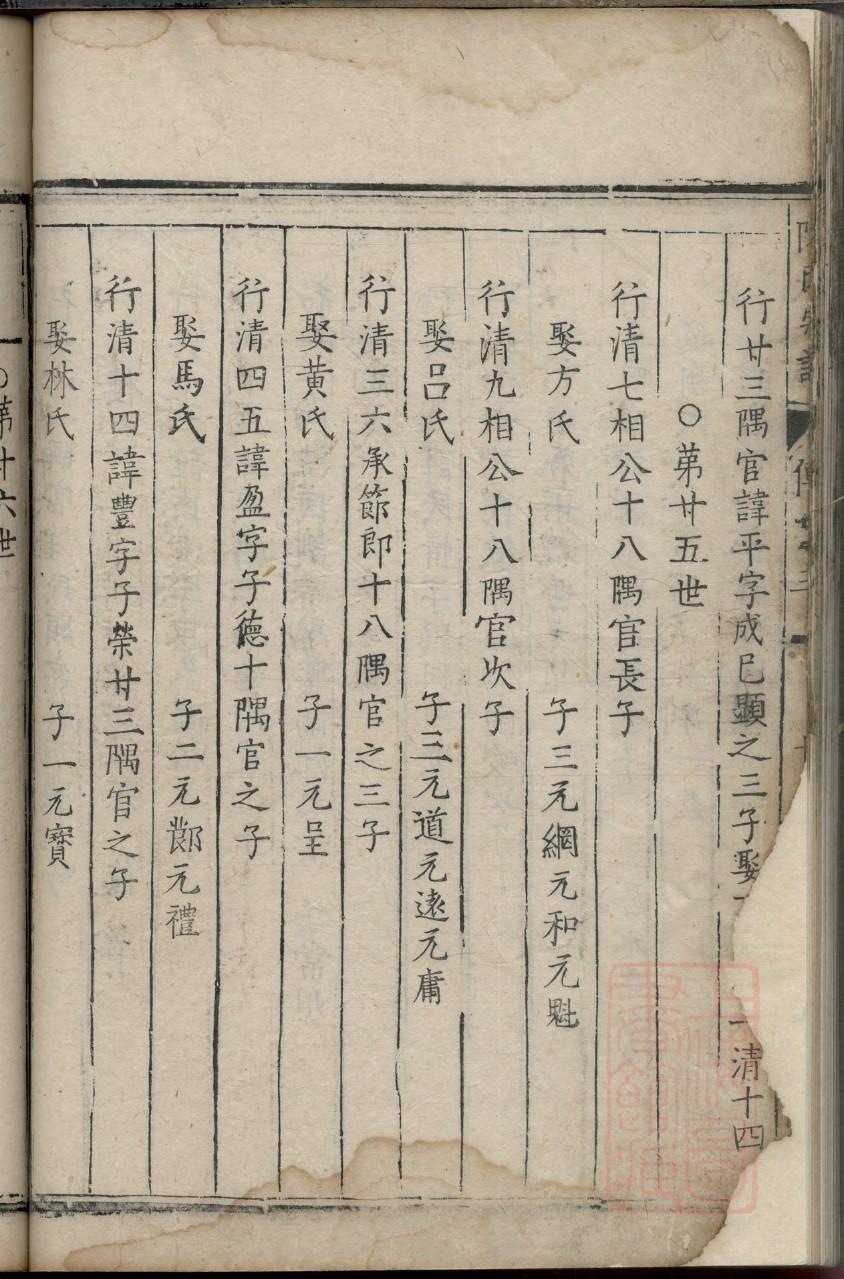 行廿三隅官諱平字成巳顯之三子娶 一清十四
○第廿五世
行清七相公十八隅官長子
娶方氏 子三元網元和元魁
行清九相公十八隅官次子
娶吕氏 子三元道元遠元庸
行清三六承節郎十八隅官之三子
娶黄氏 子一元呈
行清四五諱盈字子德十隅官之子
娶馬氏 子二元鄼元禮
行清十四諱豐字子榮廿三隅官之子
娶林氏 子一元寳
○第廿六世